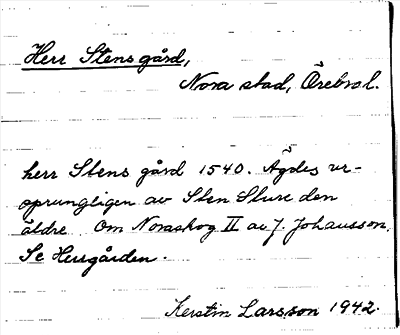 Herr Stens gård,
Nora stad, Örebro l.
herr Stens gård 1540. Ägdes ur-
sprungligen av Sten Sture den
äldre. Om Noraskog II av J. Johansson.
Se Herrgården.
Kerstin Larsson 1942.